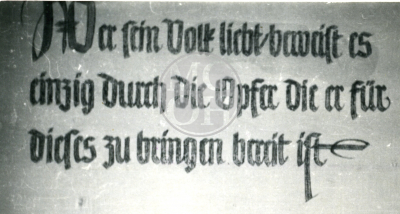 Wer sein Volk liebt beweist es
einzig durch die Opfer die er für
dieses zu bringen bereit ist